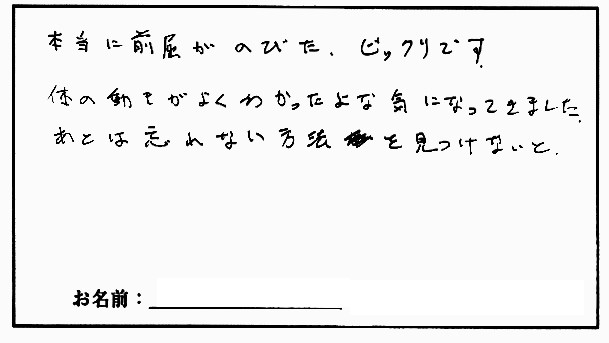 本当に前屈がのびた、ビックリです
体の動きがよくわかったような気になってきました。
あとは忘れない方法を見つけないと。
お名前：